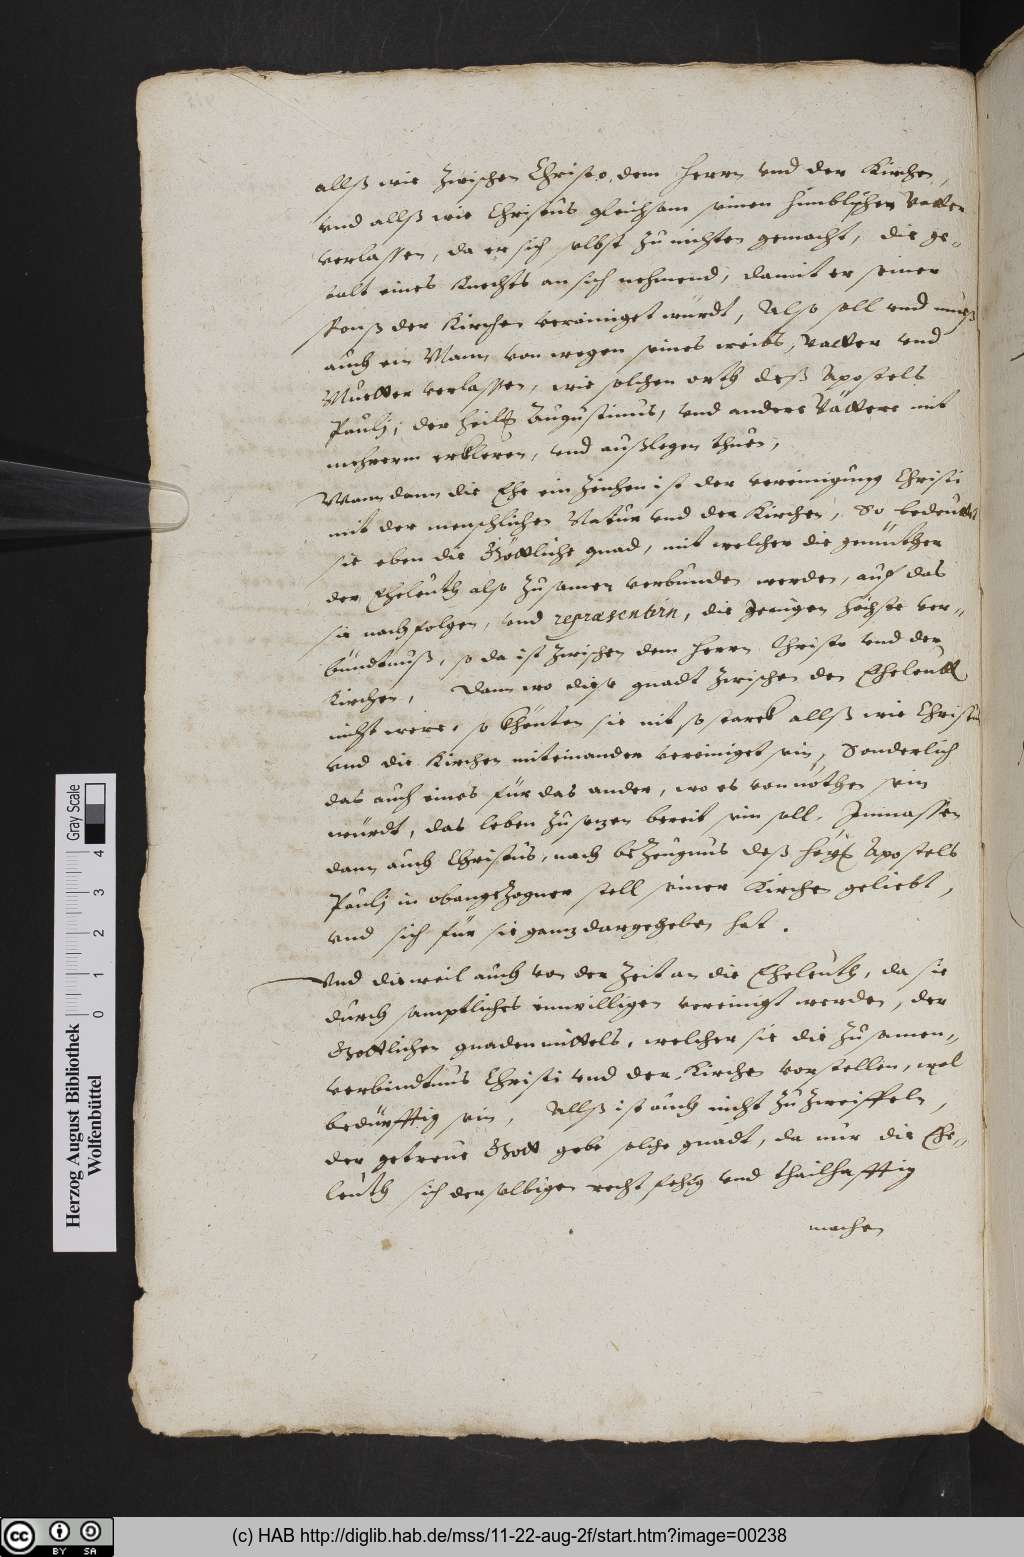 allß wie zwischen Christo, dem Herrn vnd der Kirchen,
vnd allß wie Christus gleichsam seinen himblischen Vatter
verlassen, da er sich selbst zu nichten gemacht, die ge-
talt eines Knechts an sich nehmend, damit er seiner
sponß der Kirchen vereiniget würdt, Also soll vnd mueß
auch ein Mann von wegen seines weibs, Vatter vnd
Muetter verlassen, wie solchen orth deß Apostels
Paulj, der heilg Augustinus, vnd andere Vättere mit
mehrerm erkleren, vnd außlegen thuen,
Wann dann die Ehe ein Zeichen ist der vereinigung Christi
mit der menschlichen Natur vnd der Kirchen, So bedeuttet
sie eben die Göttliche gnad, mit welcher die gemüther
der Eheleuth also zusamen verbunden werden, auf das
sie nachfolgen, vnd repræsentirn, die Jenigen höchste ver-
bündtnuß, so da ist zwischen dem Herrn Christo vnd der
Kirchen, Dann wo diese gnadt zwischen den Eheleutt
nicht were, so khönten sie nit so starck allß wie Christus
vnd die Kirchen miteinander vereiniget sein, Sonderlich
das auch eines für das ander, wo es vonnöthen sein
würdt, das leben zusezen bereit sein soll, Jnmassen
dann auch Christus, nach bezeugnus deß heylg Apostels
Paulj in obangezogner stell seiner Kirchen geliebt,
vnd sich für sie ganz dargegeben hat.
Vnd dieweil auch von der Zeit an die Eheleuth, da sie
durch samptliches einwilligen vereinigt werden, der
Göttlichen gnadenmittels, welcher sie die zusamen-
verbindtnus Christi vnd der Kirchen vorstellen, wol
bedürfftig sein, Allß ist auch nicht zu zweiffeln,
der getreue Gott gebe solche gnadt, da nur die Ehe-
leuth sich derselbigen recht fehig vnd theilhafftig
machen
Herzog August Bibliothek
Wolfenbüttel
0 1 2 3 4 Gray Scale
(c) HAB http://diglib.hab.de/mss/11-22-aug-2f/start.htm?image=00238
cc BY SA